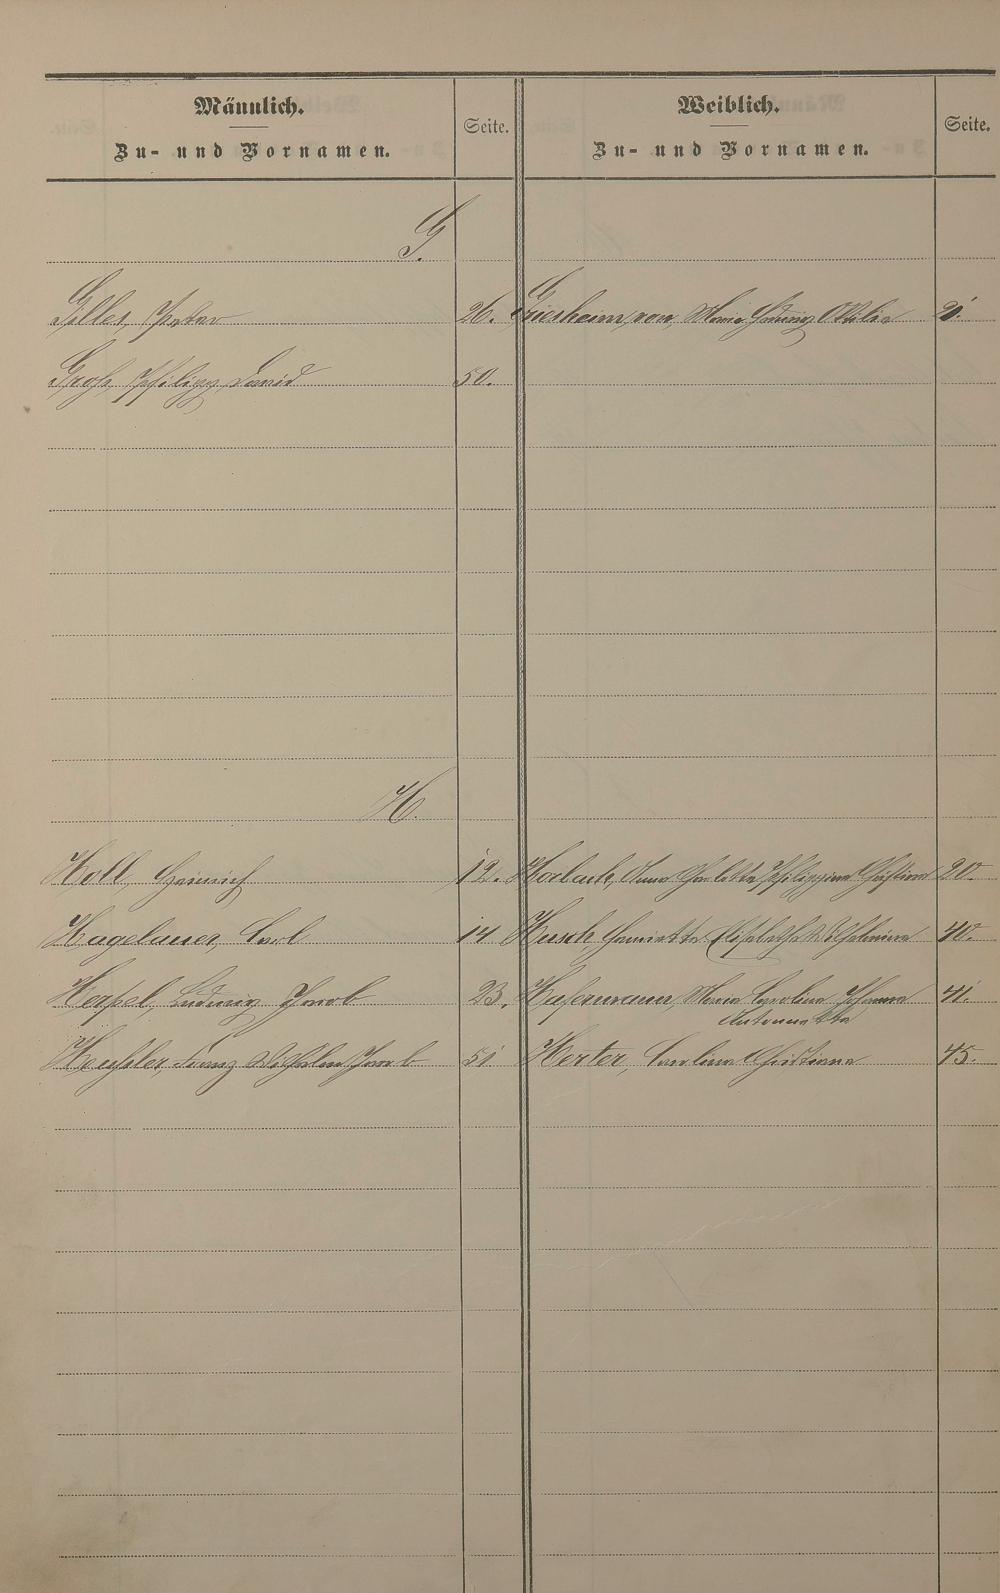 Männlich.
Zu- und Vornamen.
Seite.
Weiblich.
Zu- und Vornamen.
Seite.
G.
Gilles, Peter 26. Griesheim, von, Maria Hedwig Ottilie 21.
Groh, Philipp David 50.
H.
Holl, Heinrich 12. Horlach, Anna Charlotte Philippine Christine 20.
Hagelauer, Carl 14 Husch, Henriette Elisabetha Wilhelmine 40.
Herpel, Ludwig Jacob 23. Hafermann, Maria Carolina Johanna 41.
Antonnette
Franz Wilhelm Jacob 51 Herter, Carolina Christiana 45.